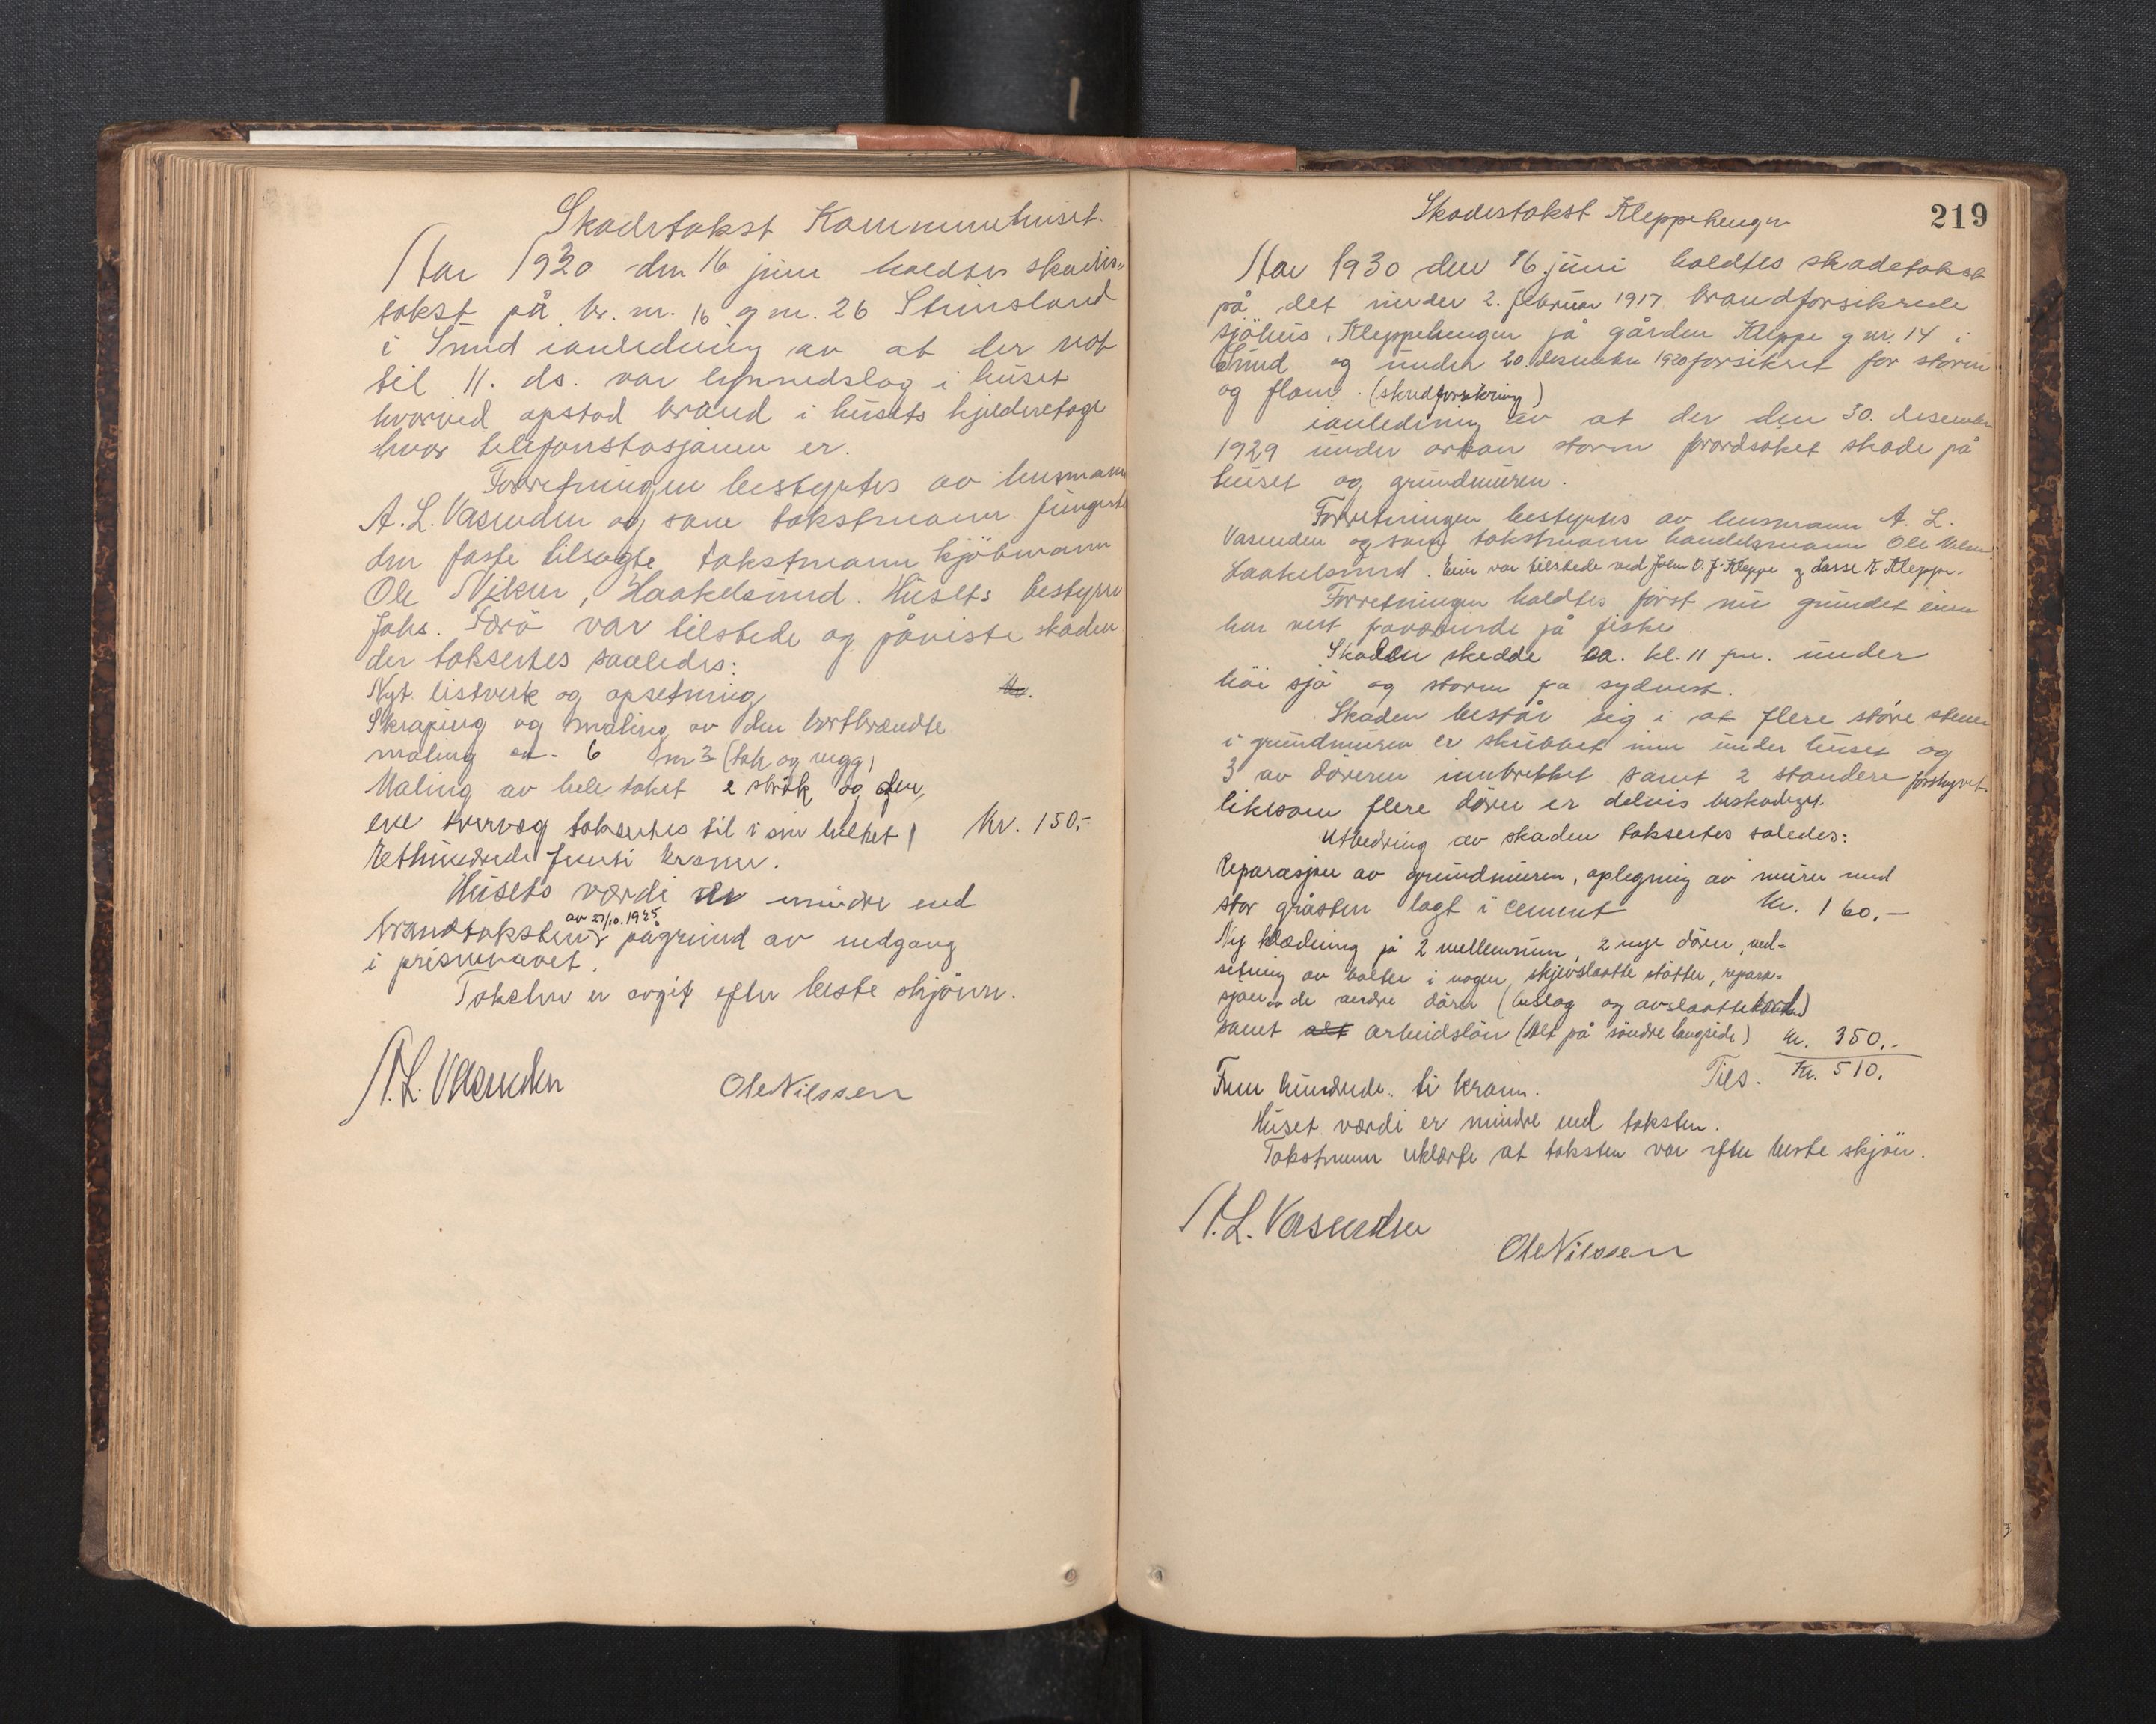 Skadetakst Kommunehuset.
Aar 1930 den 16 juni holdtes skades-
takst på br. nr. 16 g nr. 26 Steinsland
i Sund ianledning av at der nat
til 11. ds. var lynnedslag i huset
hvorved opstod brand i husets kjelderetage
hvor telefonstasjonen er.
Forretningen bestyrtes av lensmann
A. L. Vasenden og som takstmann fungerte
den faste tilsagte takstmann kjöbmann
Ole Nilsen, Haakelsund. Husets bestyrer
Johs. Tærö var tilstede og påviste skaden
der taksertes saaledes:
Nyt listverk og opsetning Kr.
Skraping og maling av den bortbrændte
maling ca. 6 m2 (tak og vegg)
Maling av hele taket 2 strök og den
ene tvervæg taksertes til i sin helhet Kr. 150,-
Ethundrede femti kroner.
Husets værdi er mindre end
brandtaksten av 27/10.1925 pågrund av nedgang
i prisnivaaet.
Taksten er avgit efter beste skjönn.
A. L. Vasenden Ole Nilssen
219
Skadestakst Kleppehengen
Aar 1930 den 16 juni holdtes skadetakst
på det under 2. februar 1917 brandforsikrede
sjöhus, Kleppehengen på gården Kleppe g. nr. 14 i
Sund og under 20. desember 1920 forsikret for storm
og flom. (skredforsikring)
ianledning av at der den 30. desember
1929 under orkan storm forårsaket skade på
huset og grundmuren.
Forretningen bestyrtes av lensmann A. L.
Vasenden og som takstmann handelsmann Ole Nilsen
Haakelsund. Eier var tilstede ved Johan O. J. Kleppe og Lasse K. Kleppe.
Forretningen holdtes först nu grundet eieren
har vert fraværende på fiske.
Skaden skedde ca. kl. 11 fm. under
höi sjö og storm fra sydvest.
Skaden består sig i at flere störe stener
i grundmuren er skubbet inn under huset og
3 av dörerne inntrykket samt 2 standere forskjövet.
likesom flere dörer er delvis beskadiget.
Utbedring av skaden taksertes saledes:
Reparasjon av grundmuren, oplegning av muren med
stor gråsten lagt i cement Kr. 160.-
Ny klædning på 2 mellemrum, 2 nye dörer, ned-
setning av bolter i vogen, skjevslaatte stötter, repara-
sjon av de andre dörer (beslag og avslaatte bord)
samt alt arbeidslön (Alt på söndre langside) Kr. 350.-
Tils. Kr. 510.
Fem hundrede ti kroner.
Huset værdi er mindre end taksten.
Takstmenn erklærte at taksten var efter beste skjön.
A. L. Vasenden
Ole Nilssen